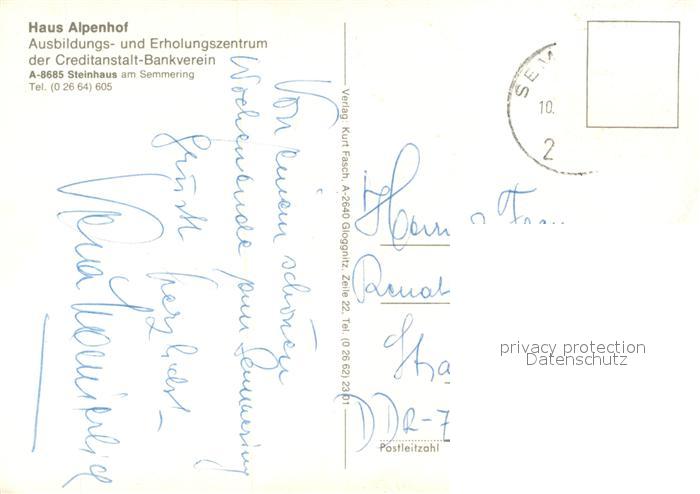 Haus Alpenhof
Ausbildungs- und Erholungszentrum
der Creditanstalt-Bankverein
A-8685 Steinhaus am Semmering
Tel. (0 26 64) 605
Von einem schönen
Wochenende am Semmering
grüßt herzlichst
Verlag: Kurt Fasch, A-2640 Gloggnitz, Zeile 22, Tel. (0 26 62) 23 01
SEM
10.
2
Renat
Stra
DDR-7
Postleitzahl
privacy protection
Datenschutz